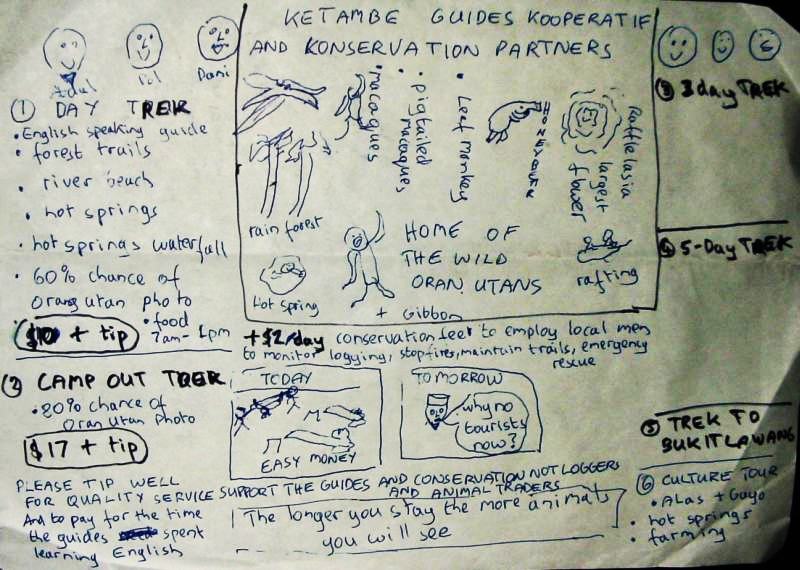 KETAMBE GUIDES KOOPERATIF
AND KONSERVATION PARTNERS
Adul
Pol
Dani
① DAY TREK
• English speaking guide
• forest trails
• river beach
• hot springs
• hot springs waterfall
• 60% chance of
Orang utan photo
• food
7am - 1pm
$10 + tip
② CAMP OUT TREK
• 80% chance of
Oran utan photo
$17 + tip
PLEASE TIP WELL
FOR QUALITY SERVICE
And to pay for the time
the guides spent
learning English
• macaques
• pigtailed
macaques
• Leaf monkey
HONEYBEAR
Rafflelasia
largest
flower
rain forest
Hot spring
HOME OF
THE WILD
ORAN UTANS
+ Gibbon
rafting
+ $2/day conservation fee to employ local men
to monitor logging, stop fires, maintain trails, emergency
rescue
TODAY
EASY MONEY
TOMORROW
why no
tourists
now?
SUPPORT THE GUIDES AND CONSERVATION NOT LOGGERS
AND ANIMAL TRADERS
The longer you stay the more animals
you will see
③ 3 day TREK
④ 5-Day TREK
⑤ TREK TO
BUKIT LAWANG
⑥ CULTURE TOUR
• ALAS + Gayo
• hot springs
• farming